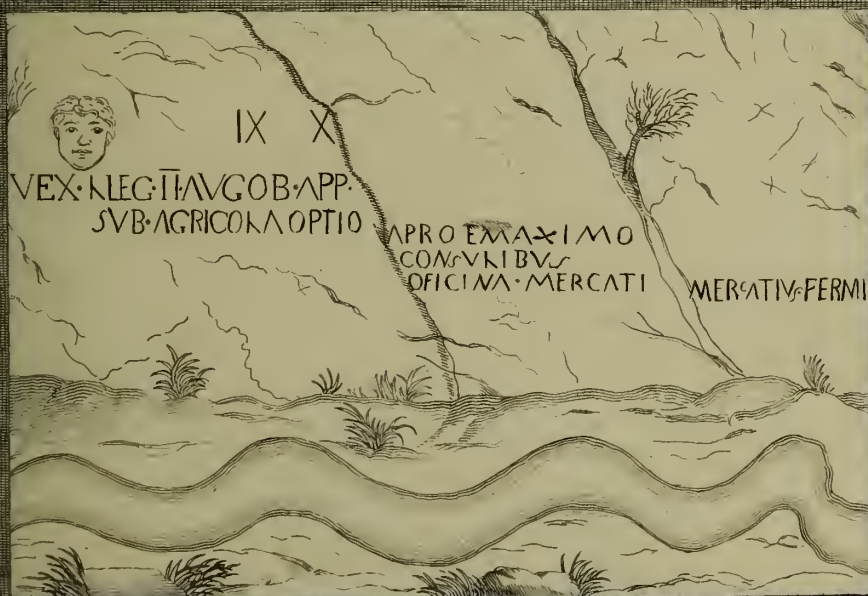 IX X
VEX·LLEG·II·AVGOB·APP·
SVB·AGRICOLA OPTIO
APRO EMAXIMO
CONSVLIBVS
OFICINA·MERCATI
MERCATIVS·FERMI